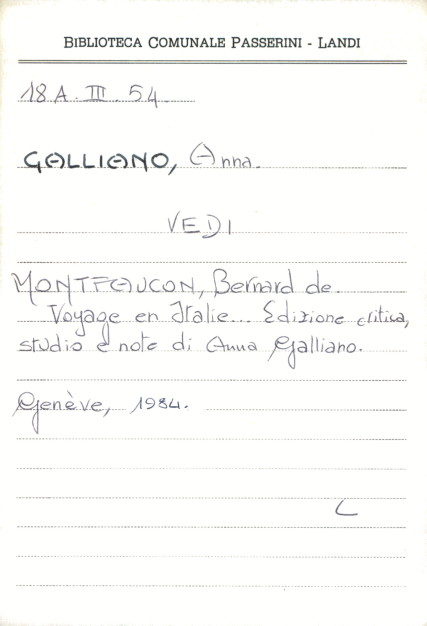 BIBLIOTECA COMUNALE PASSERINI - LANDI
18 A. III. 54
GALLIANO, Anna.
VEDI
MONTFAUCON, Bernard de.
Voyage en Italie... Edizione critica,
studio e note di Anna Galliano.
Genève, 1984.
C